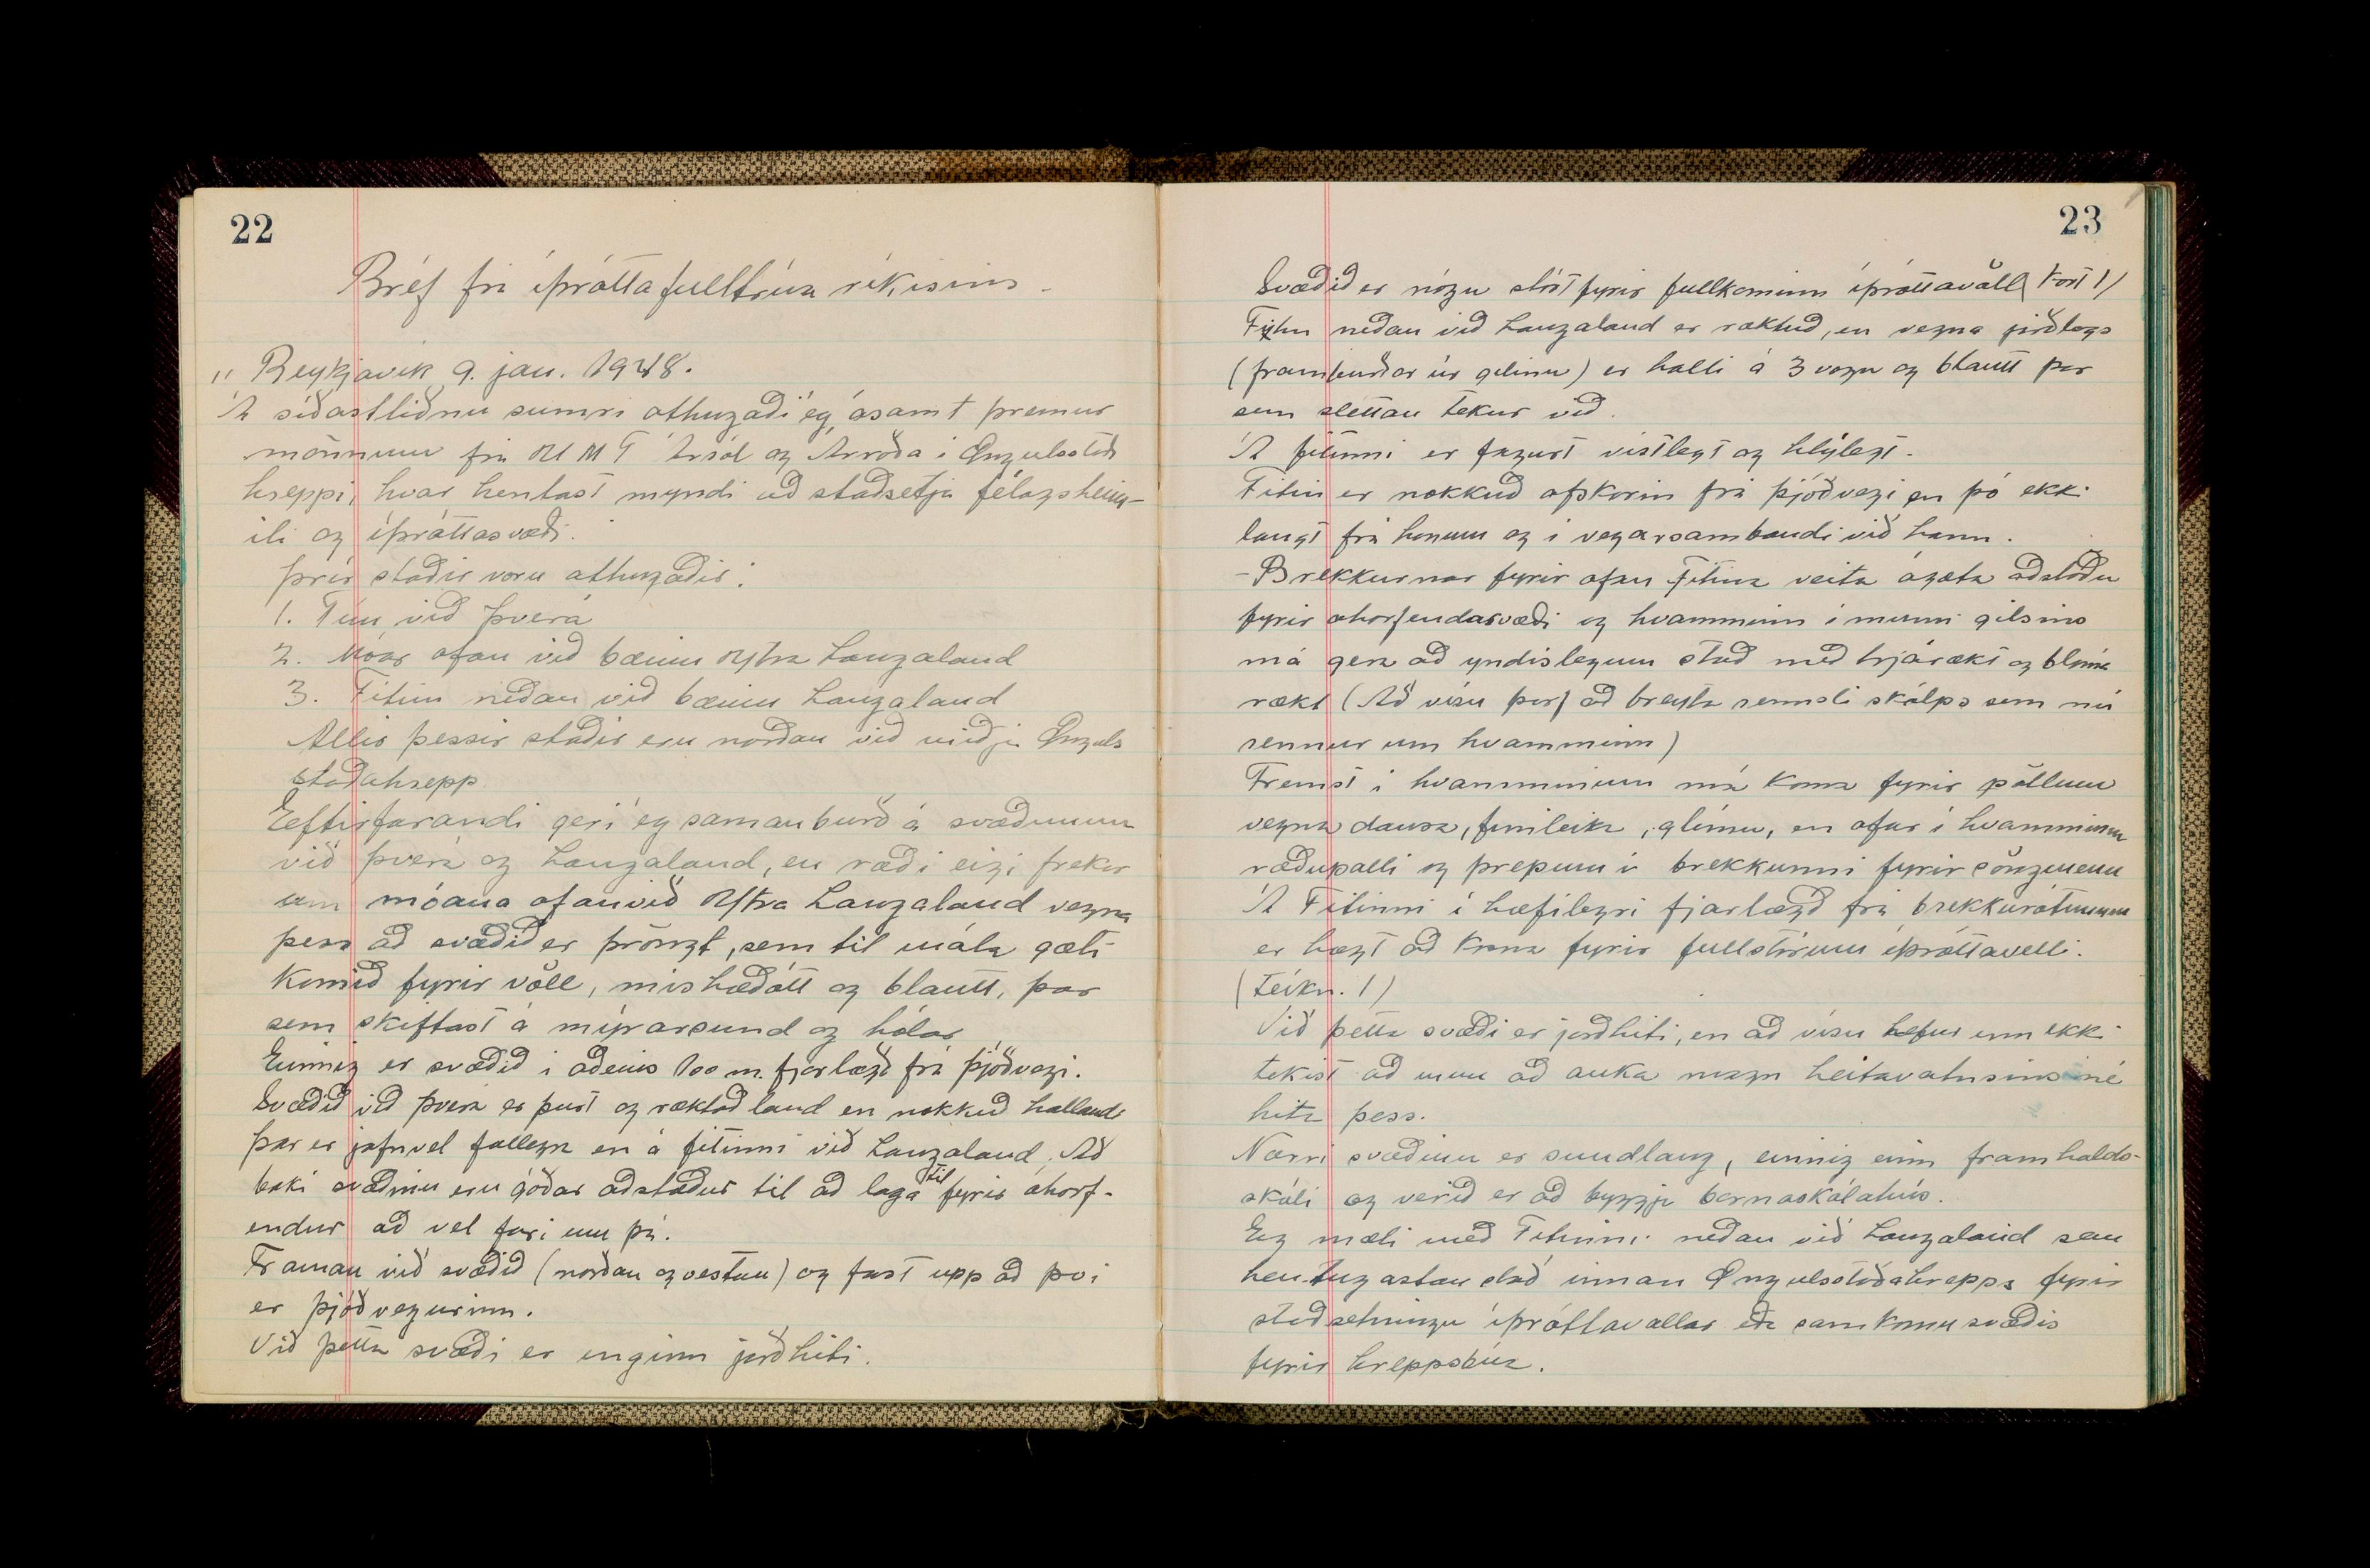 22
Bréf frá íþróttafulltrúa ríkisins -
„ Reykjavík 9. jan. 1948.
Á síðastliðnu sumri athugaði ég, ásamt þremur
mönnum frá U M F Ársól og Árroða í Öngulsstaða
hreppi, hvar hentast myndi að staðsetja félagsheim-
ili og íþróttasvæði.
Þrír staðir voru athugaðir:
1. Tún við Þverá
2. Móar ofan við bæinn Ytra Laugaland
3. Fitin neðan við bæinn Laugaland
Allir þessir staðir eru norðan við miðju Önguls
staðahrepp
Eeftirfarandi geri ég samanburð á svæðunum
við Þverá og Laugaland, en ræði eigi frekar
um móana ofanvið Ytra Laugaland vegna
þess að svæðið er þröngt, sem til mála gæti
komið fyrir völl, mishæðótt og blautt, þar
sem skiftast á mýrarsund og hólar
Einnig er svæðið í aðeins 100 m. fjarlægð frá þjóðvegi.
Svæðið við Þverá er þurt og ræktað land en nokkuð hallandi
þar er jafnvel fallegra en á fitinni við Laugaland. Að
baki svæðinu eru góðar aðstæður til að laga til fyrir áhorf-
endur að vel fari um þá.
Framan við svæðið (norðan og vestan) og fast upp að því
er þjóðvegurinn.
Við þetta svæði er enginn jarðhiti.
23
Svæðið er nógu stórt fyrir fullkominn íþróttavöll (Kort 1)
Fitin neðan við Laugaland er ræktuð, en vegna jarðlags
(framburðar úr gilinu) er halli á 3 vegu og blautt þar
sem sléttan tekur við.
Á fitinni er fagurt vistlegt og hlýlegt.
Fitin er nokkuð afskorin frá þjóðvegi en þó ekki
langt frá honum og í vegarsambandi við hann.
- Brekkurnar fyrir ofan Fitina veita ágæta aðstöðu
fyrir áhorfendasvæði og hvamminn í munni gilsins
má gera að yndislegum stað með trjárækt og blóma
rækt (Að vísu þarf að breyta rennsli skólps sem nú
rennur um hvamminn)
Fremst í hvamminum má koma fyrir pöllum
vegna dansa, fimleika, glímu, en ofar í hvamminum
ræðupalli og þrepum í brekkunni fyrir söngmenn
Á Fitinni í hæfilegri fjarlægð frá brekkurótunum
er hægt að koma fyrir fullstórum íþróttavelli.
(Teikn. 1)
Við þetta svæði er jarðhiti, en að vísu hefur enn ekki
tekist að auka magn heitavatnsins né
hita þess.
Nærri svæðinu er sundlaug, einnig einn framhalds-
skóli og verið er að byggja barnaskólahús.
Eg mæli með Fitinni neðan við Laugaland sem
hentugastan stað innan Öngulsstaðahrepps fyrir
staðsetningu íþróttavallar eða samkomusvæðis
fyrir hreppsbúa.